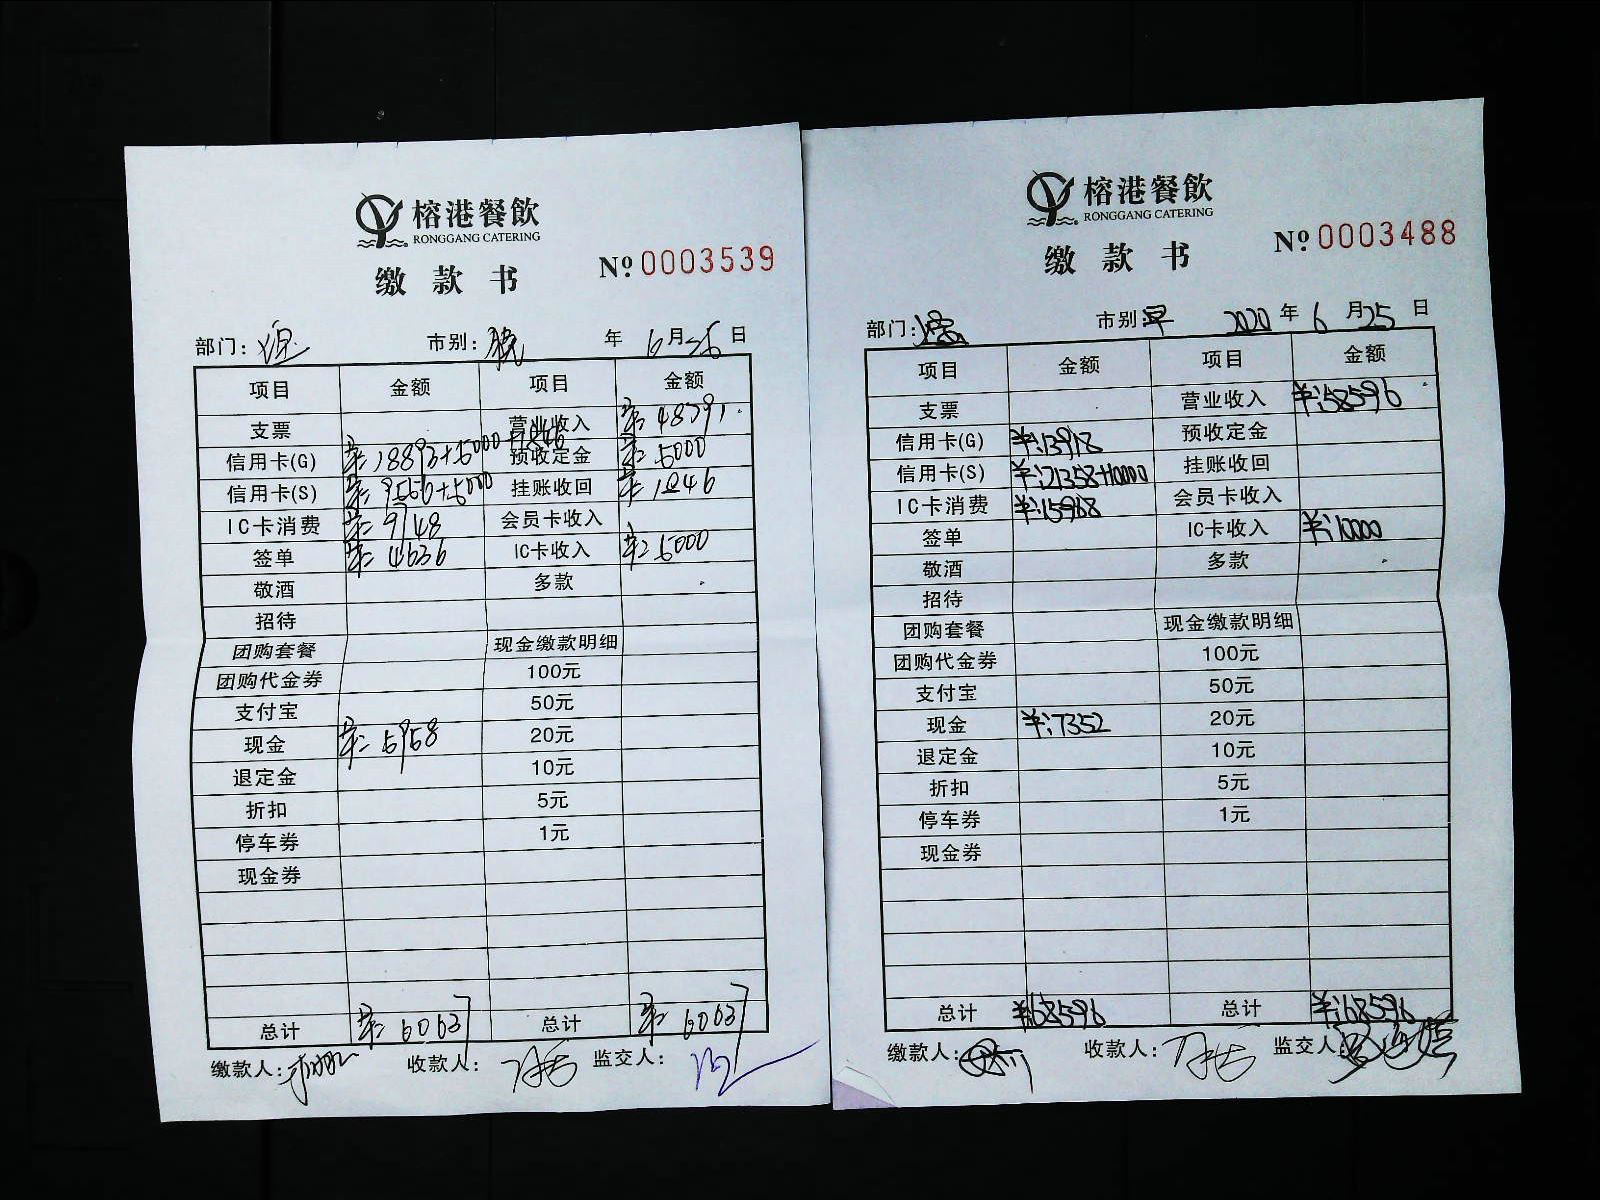 榕港餐飲
RONGGANG CATERING
缴款书 № 0003539
部门: 市别:晚 年 6月25日
项目 金额 项目 金额
支票 营业收入 ¥:48791.
信用卡(G) ¥:18893+5000+1846 预收定金 ¥:5000
信用卡(S) ¥:9556+5000 挂账收回 ¥:1846
IC卡消费 ¥:9748 会员卡收入
签单 ¥:4636 IC卡收入 ¥:5000
敬酒 多款
招待
团购套餐 现金缴款明细
团购代金券 100元
支付宝 50元
现金 ¥:5958 20元
退定金 10元
折扣 5元
停车券 1元
现金券
总计 ¥:60637 总计 ¥:60637
缴款人: 收款人: 监交人:
榕港餐飲
RONGGANG CATERING
缴款书 № 0003488
部门: 市别:早 2020年6月25日
项目 金额 项目 金额
支票 营业收入 ¥:58596
信用卡(G) ¥:13918 预收定金
信用卡(S) ¥:21358+10000 挂账收回
IC卡消费 ¥:15968 会员卡收入
签单 IC卡收入 ¥:10000
敬酒 多款
招待
团购套餐 现金缴款明细
团购代金券 100元
支付宝 50元
现金 ¥:7352 20元
退定金 10元
折扣 5元
停车券 1元
现金券
总计 ¥:68596 总计 ¥:68596
缴款人: 收款人: 监交人: